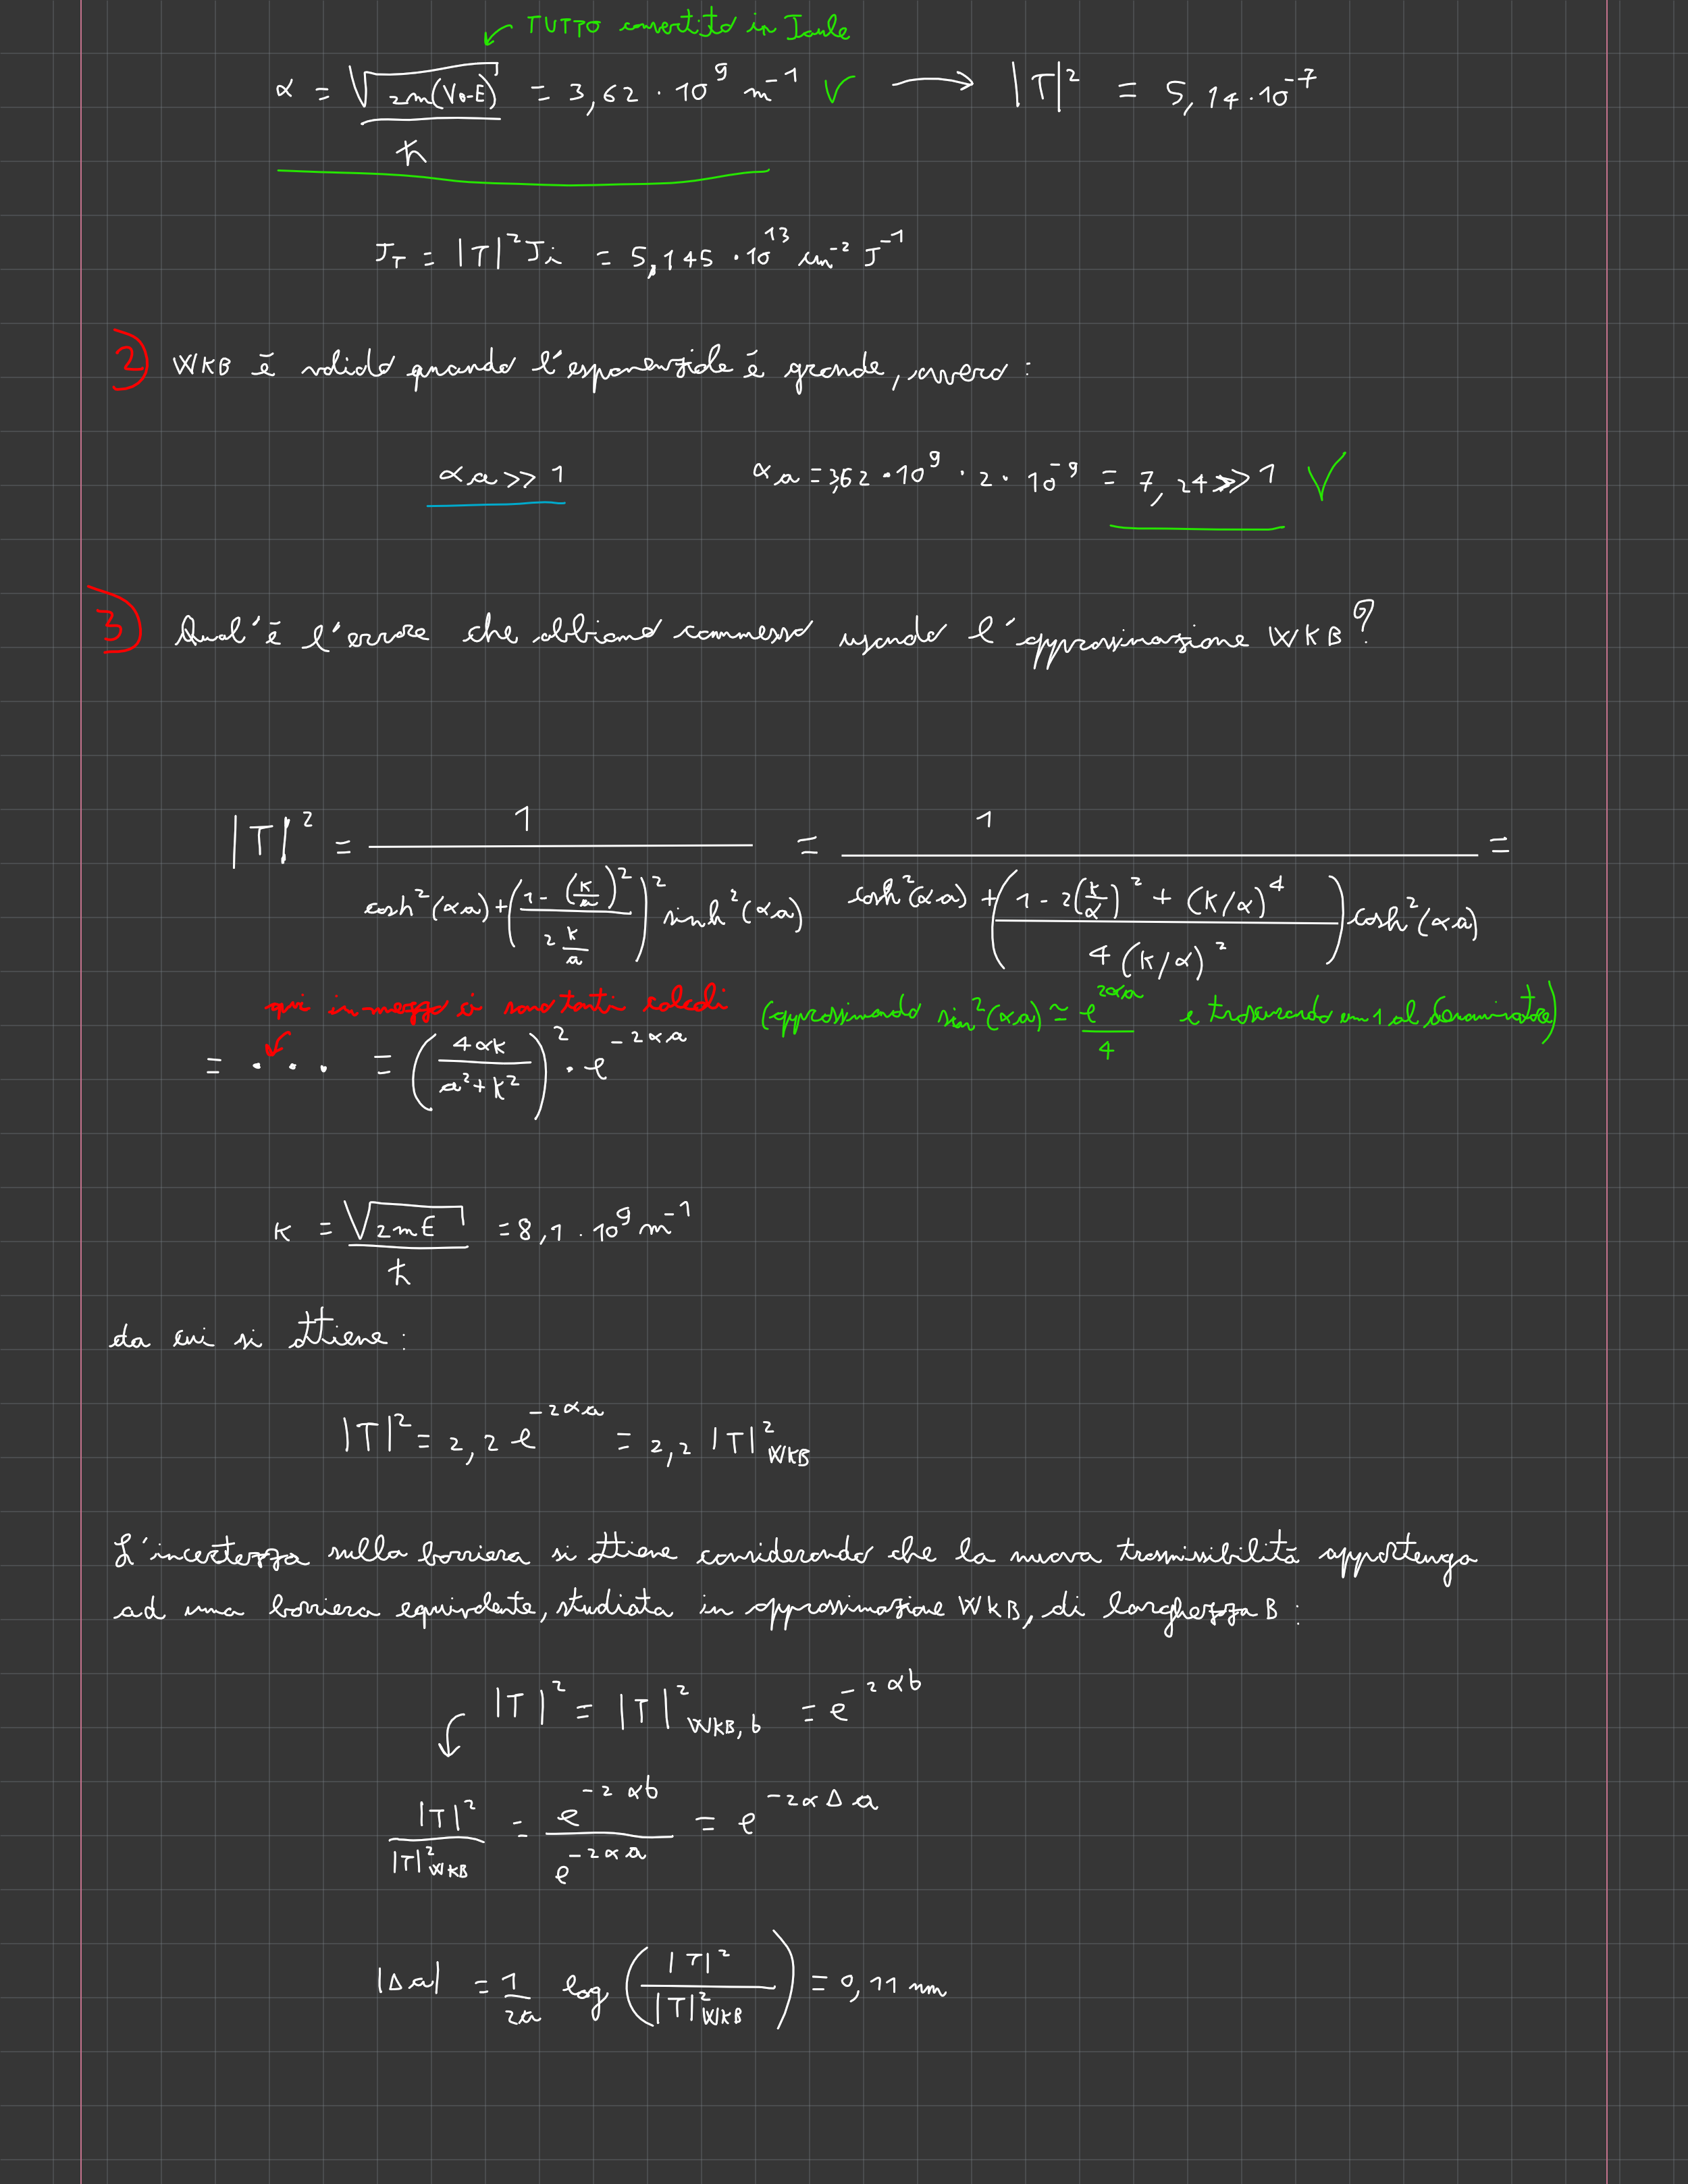 TUTTO convertito in Joule
α = √(2m(V₀-E)) / ħ = 3,62 · 10⁹ m⁻¹ ✓ → |T|² = 5,14 · 10⁻⁷
J_T = |T|² Ji = 5,145 · 10¹³ cm⁻² J⁻¹
2) WKB è valido quando l'esponenziale è grande, ovvero:
αa >> 1 αa = 3,62 · 10⁹ · 2 · 10⁻⁹ = 7,24 >> 1 ✓
3) Qual'è l'errore che abbiamo commesso usando l'approssimazione WKB?
|T|² = 1 / (cosh²(αa) + ((1 - (k/a)²) / (2 k/a))² sinh²(αa)) = 1 / (cosh²(αa) + ((1 - 2(k/α)² + (k/α)⁴) / (4 (k/α)²)) cosh²(αa)) =
qui in mezzo ci sono tanti calcoli (approssimando sin²(αa) ≃ e^(2αa) / 4 e trascurando un 1 al denominatore)
= . . . = (4αk / (a² + k²))² · e^(-2αa)
K = √(2mE) / ħ = 8,1 · 10⁹ m⁻¹
da cui si ottiene:
|T|² = 2,2 e^(-2αa) = 2,2 |T|²_WKB
L'incertezza sulla barriera si ottiene considerando che la nuova trasmissibilità appartenga
ad una barriera equivalente, studiata in approssimazione WKB, di larghezza B:
|T|² = |T|²_WKB,b = e^(-2αb)
|T|² / |T|²_WKB = e^(-2αb) / e^(-2αa) = e^(-2αΔa)
|Δa| = 1/2a log (|T|² / |T|²_WKB) = 0,11 nm